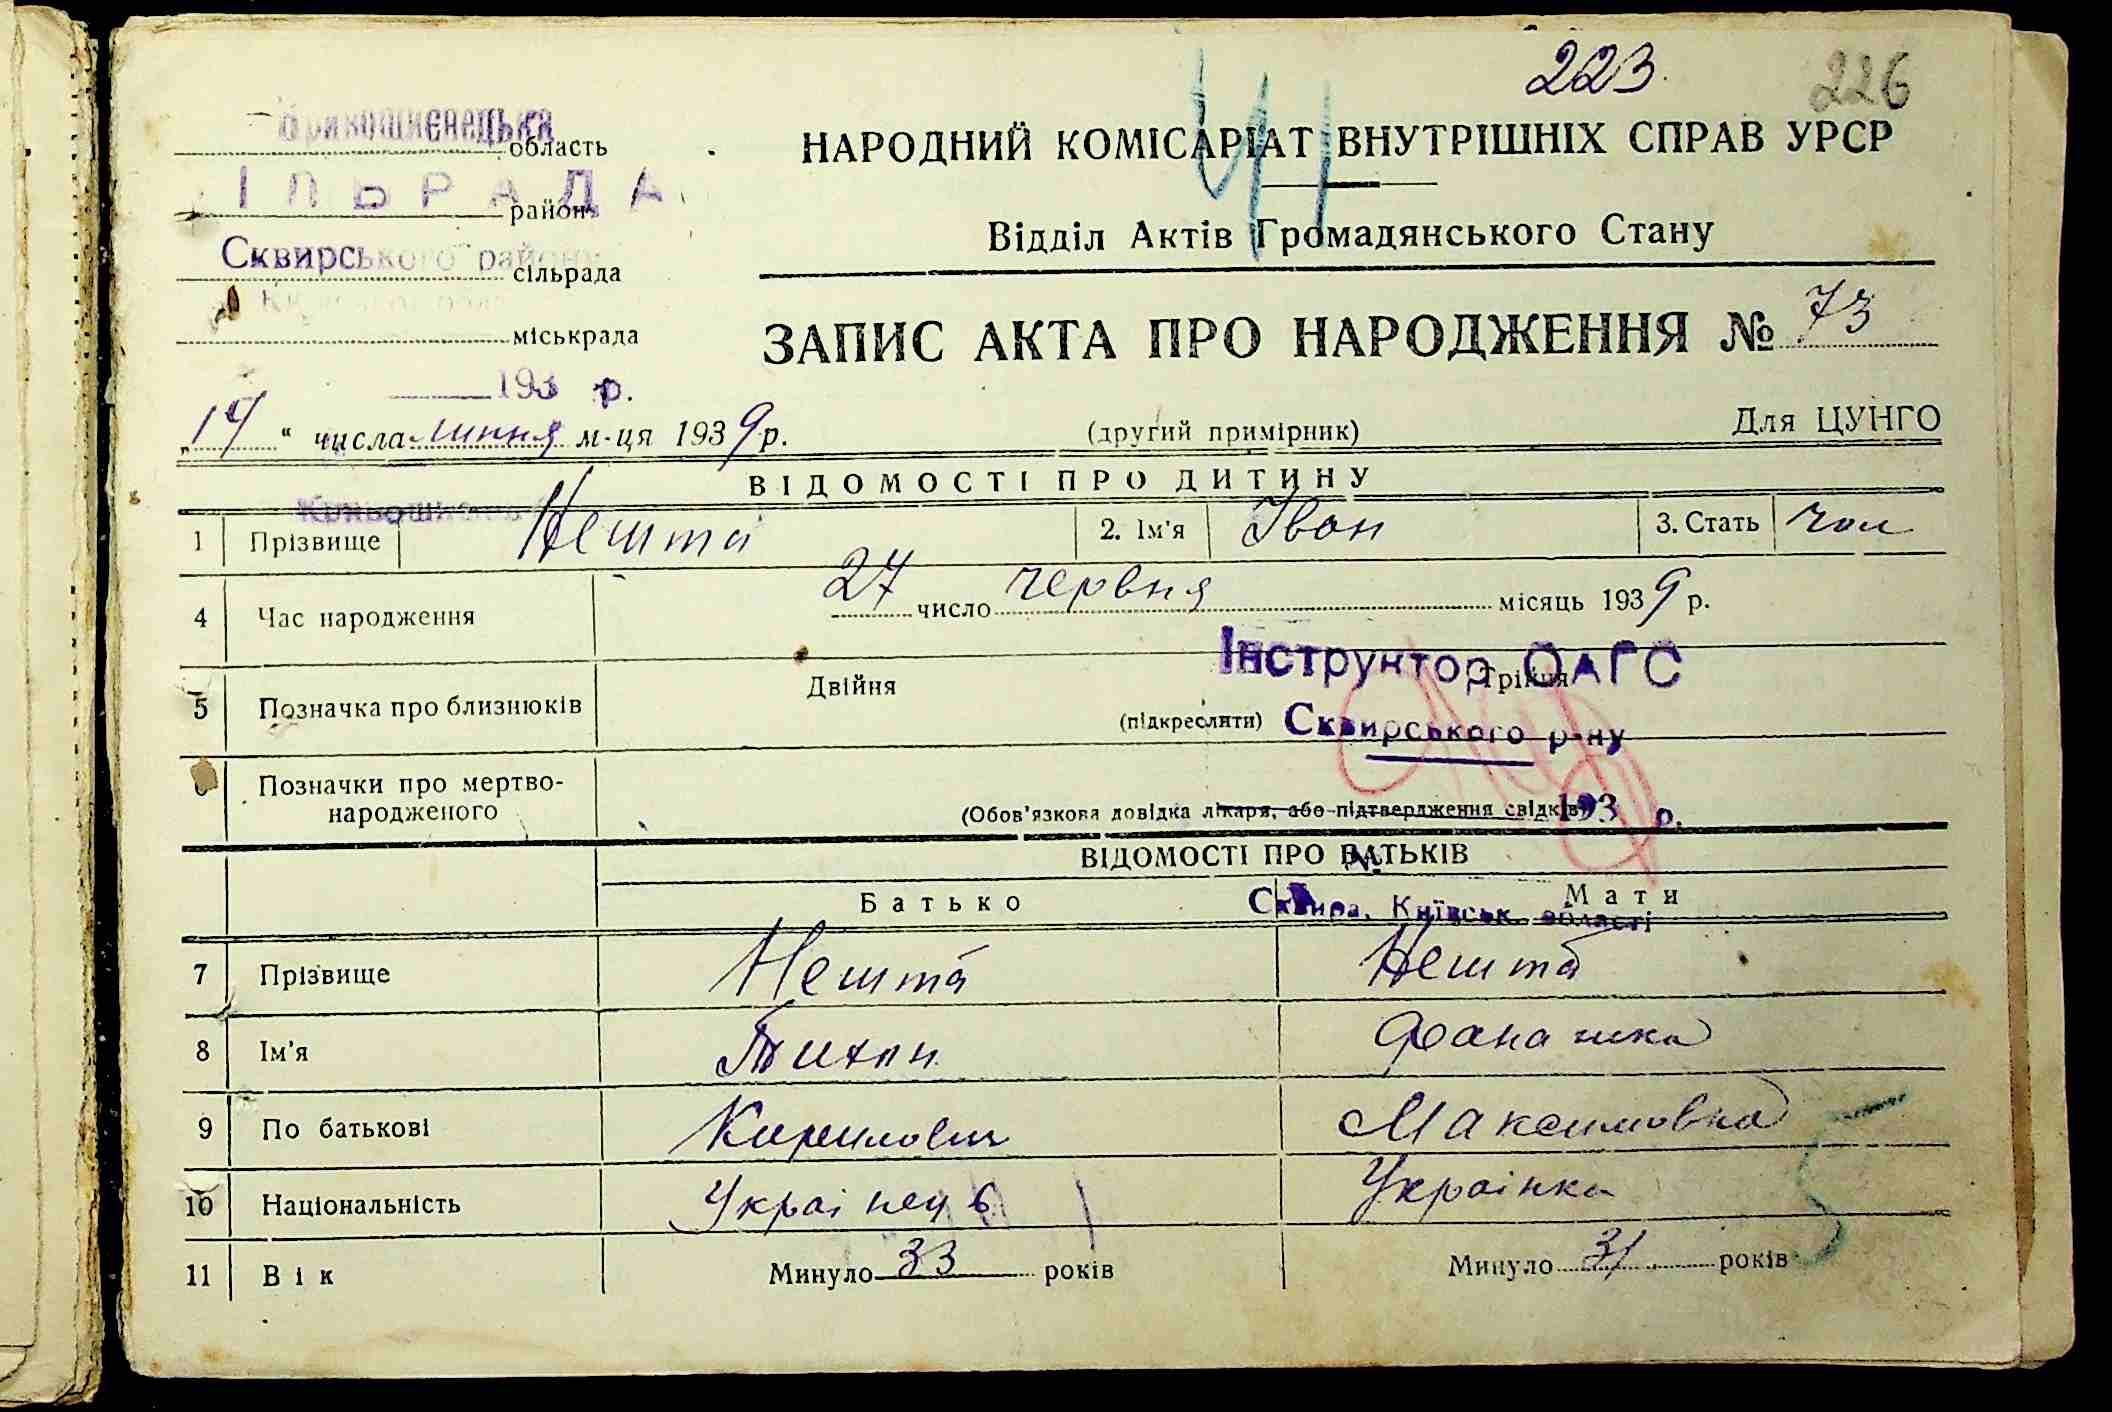 223.
226
область
ІЛЬРАДА
район
Сквирського району
сільрада
міськрада
193 р.
НАРОДНИЙ КОМІСАРІАТ ВНУТРІШНІХ СПРАВ УРСР
Відділ Актів Громадянського Стану
ЗАПИС АКТА ПРО НАРОДЖЕННЯ № 73
„14“ числа липня м-ця 1939 р.
(другий примірник)
Для ЦУНГО
ВІДОМОСТІ ПРО ДИТИНУ
1 Прізвище Нешта 2. Ім'я Іван 3. Стать чол
4 Час народження 27 число червня місяць 1939 р.
Інструктор ОАГС
5 Позначка про близнюків Двійня (підкреслити) Трійня
Сквирського р-ну
6 Позначки про мертво-
народженого
(Обов'язкова довідка лікаря, або підтвердження свідків)
193 р.
ВІДОМОСТІ ПРО БАТЬКІВ
№
Батько Мати
Сквира, Київськ. області
7 Прізвище Нешта Нешта
8 Ім'я Тихон
9 По батькові Кирилович Максимовна
10 Національність Українець Українка
11 Вік Минуло 33 років Минуло 31 років